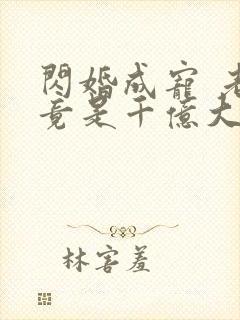 閃婚成寵 老
竟是千億大
林害羞